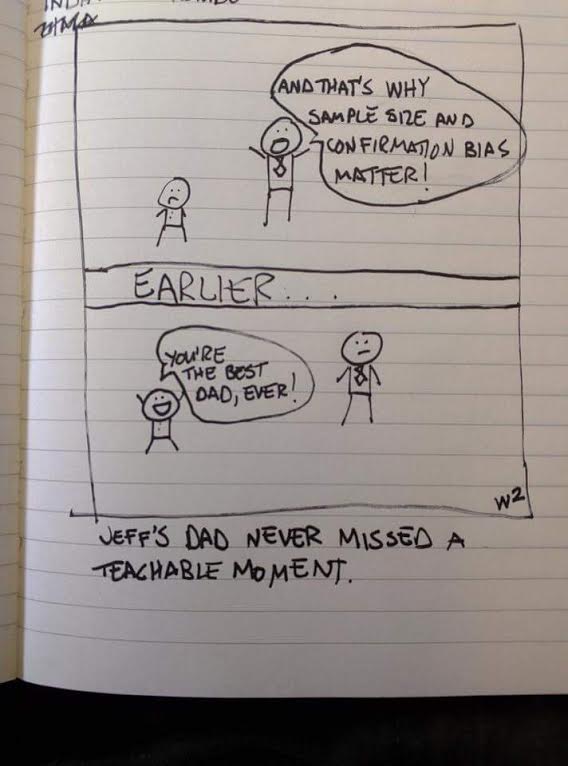 AND THAT'S WHY
SAMPLE SIZE AND
CONFIRMATION BIAS
MATTER!
EARLIER....
YOU'RE
THE BEST
DAD, EVER!
W2
JEFF'S DAD NEVER MISSED A
TEACHABLE MOMENT.